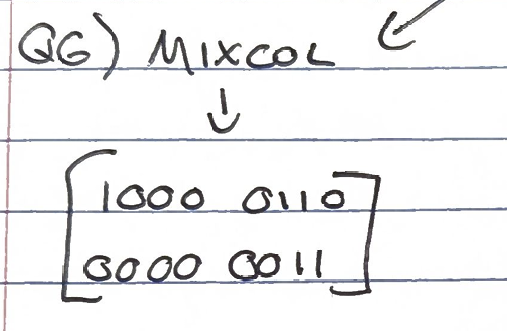 Q6) MIXCOL
1000 0110
0000 0011